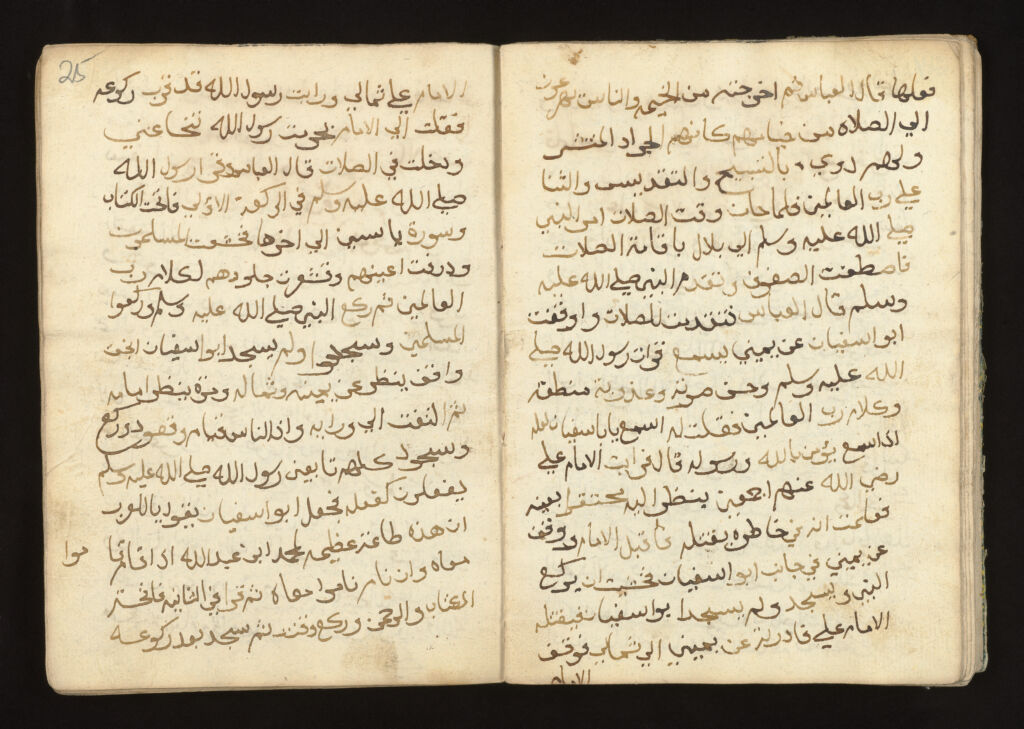 فعلها قال العباس ثم اخرجته من الخيمه والناس يهرعون
الي الصلاه من خيامهم كانهم الجراد المنتشر
ولهم دوي بالتسبيح والتقديس والثنا
علي رب العالمين فلما حان وقت الصلات امر النبي
صلي الله عليه وسلم الي بلال باقامة الصلات
فاصطفت الصفوف وتقدم النبي صلي الله عليه
وسلم قال العباس فتقدمت للصلات واوقفت
ابو اسفيان عن يميني يسمع قرات رسول الله صلي
الله عليه وسلم وحسن صوته وعذوبة منطقه
وكلام رب العالمين فقلت له اسمع يابا سفيان لعله
اذا سمع يؤمن بالله ورسوله قال فرايت الامام علي
رضي الله عنهم اجمعين ينظر اليه محتقرا بعينه
فعلمت انه في خاطره بقتله فاقبل الامام ووقف
عن يميني في جانب ابو اسفيان فخشيت ان يركع
النبي ويسجد ولم يسجد ابو اسفيان فيقتله
الامام علي فادرته عن يميني الي شمالي فوقف
الامام
215
الامام علي شمالي ورايت رسول الله قد قرب ركوعه
فقلت الي الامام نحن بين رسول الله فتنحا عني
ودخلت في الصلات قال العباس وقرا رسول الله
صلي الله عليه وسلم في الركعة الاولي فاتحت الكتاب
وسورة ياسين الي اخرها فخشعت المسلمون
ودرفت اعينهم وقشعرت جلودهم لكلام رب
العالمين ثم ركع النبي صلي الله عليه وسلم وركعوا
المسلمين وسجدوا ولم يسجد ابو اسفيان الحق
واقف ينظر عن يمينه وشماله ومره ينظر امامه
ثم التفت الي ورايه واذا الناس قيام وقعود وركع
وسجود كلهم تابعين رسول الله صلي الله عليه وسلم
يفعلون كفعله فجعل ابو اسفيان يقول ياللعرب
ان هذه طاعة عظيمه لمحمد ابن عبد الله اذا قام قاموا
معاه وان نام ناموا معاه ثم قرا في الثانيه فاتحة
الكتاب والرحمن وركع وقنت ثم سجد بعد ركوعه